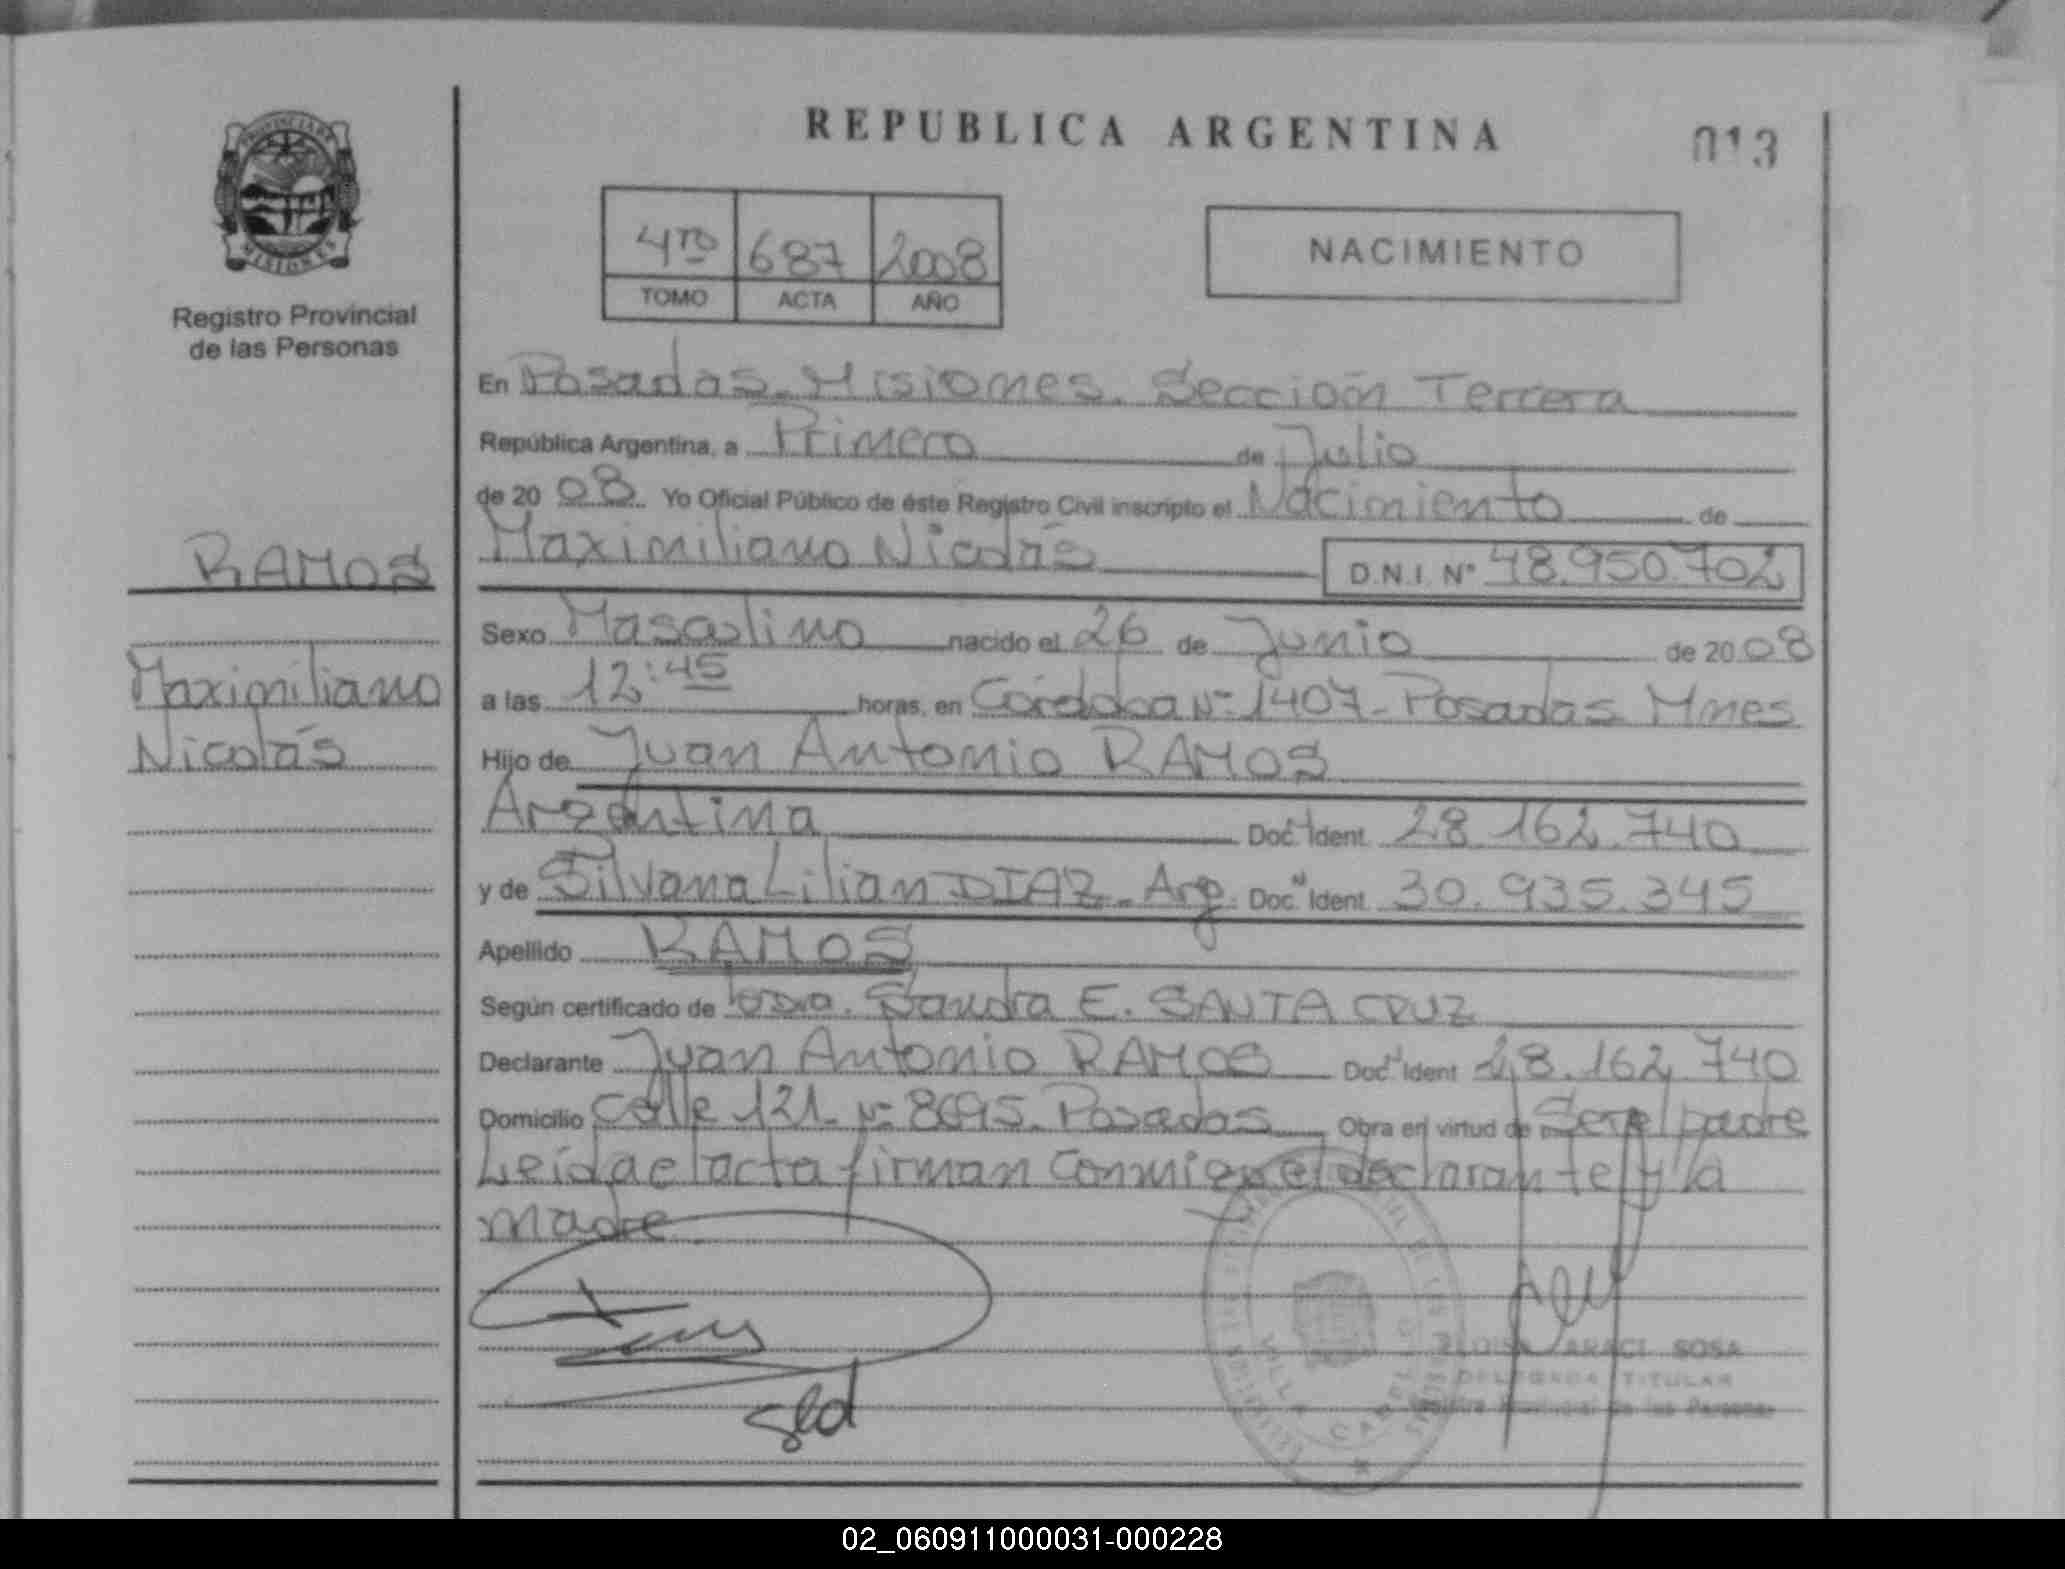 REPUBLICA ARGENTINA
013
PROVINCIA DE
MISIONES
Registro Provincial
de las Personas
4to 687 2008
TOMO ACTA AÑO
NACIMIENTO
En Posadas. Misiones. Sección Tercera
República Argentina, a Primero de Julio
de 2008 Yo Oficial Público de éste Registro Civil inscripto el Nacimiento de
Maximiliano Nicolás D.N.I. Nº 48.950.702
RAMOS
Maximiliano
Nicolás
Sexo Masculino nacido el 26 de Junio de 2008
a las 12:45 horas, en Córdoba Nº 1407- Posadas Mnes
Hijo de Juan Antonio RAMOS
Argentina Doc. Ident. 28.162.740
y de Silvana Lilian DIAZ - Arg. Doc. Ident. 30.935.345
Apellido RAMOS
Según certificado de Sandra E. SANTA CRUZ
Declarante Juan Antonio RAMOS Doc. Ident 28.162.740
Domicilio Calle 121 Nº 8695. Posadas Obra en virtud de Ser el padre
Leída el acta firman conmigo el declarante y la
madre.
VILLA CABELLO
ELOISA ARACI SOSA
DELEGADA TITULAR
Registro Provincial de las Personas
02_060911000031-000228